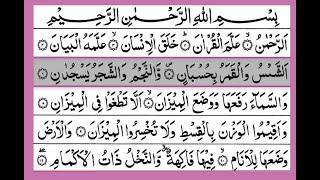 بِسْمِ اللهِ الرَّحْمٰنِ الرَّحِيْمِ
اَلرَّحْمٰنُ ۙ عَلَّمَ الْقُرْاٰنَ ؕ خَلَقَ الْاِنْسَانَ ۙ عَلَّمَهُ الْبَيَانَ
اَلشَّمْسُ وَالْقَمَرُ بِحُسْبَانٍ ۪ وَّالنَّجْمُ وَالشَّجَرُ يَسْجُدٰنِ
وَالسَّمَآءَ رَفَعَهَا وَوَضَعَ الْمِيْزَانَ ۙ اَلَّا تَطْغَوْا فِى الْمِيْزَانِ
وَاَقِيْمُوا الْوَزْنَ بِالْقِسْطِ وَلَا تُخْسِرُوا الْمِيْزَانَ وَالْاَرْضَ
وَضَعَهَا لِلْاَنَامِ ۙ فِيْهَا فَاكِهَةٌ ۙ وَّالنَّخْلُ ذَاتُ الْاَكْمَامِ